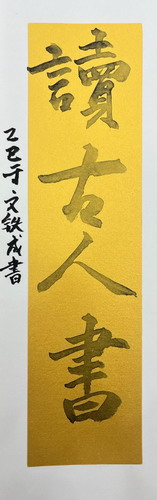 讀古人書
乙巳于文铁成書